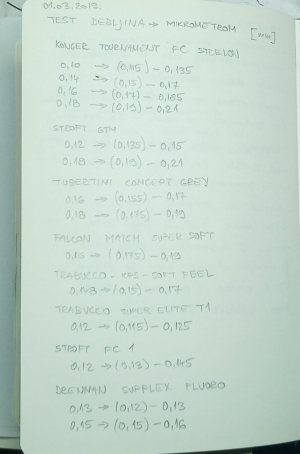 01.03.2019.
TEST DEBLJINA → MIKROMETROM
[mm]
KONGER TOURNAMENT FC STEELON
0,10 → (0,115) - 0,135
0,14 → (0,15) - 0,17
0,16 → (0,17) - 0,185
0,18 → (0,19) - 0,21
STROFT GTM
0,12 → (0,135) - 0,15
0,18 → (0,19) - 0,21
TUBERTINI CONCEPT GREY
0,16 → (0,155) - 0,17
0,18 → (0,175) - 0,19
FALCON MATCH SUPER SOFT
0,16 → (0,175) - 0,19
TRABUCCO - XPS - SOFT FEEL
0,148 → (0,15) - 0,17
TRABUCCO SUPER ELITE T1
0,12 → (0,115) - 0,125
STROFT FC 1
0,12 → (0,13) - 0,145
DRENNAN SUPPLEX FLUORO
0,13 → (0,12) - 0,13
0,15 → (0,15) - 0,16